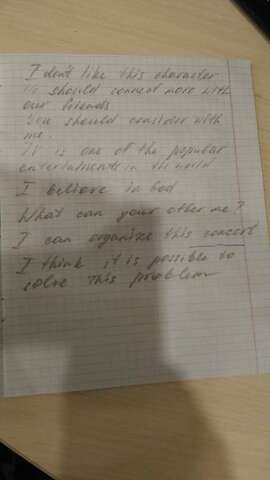 I don't like this character
We should connect more with
our friends
You should consider with
me.
It is one of the popular
entertainments in the world
I believe in God
What can your other me?
I can organize this concert
I think it is possible to
solve this problem